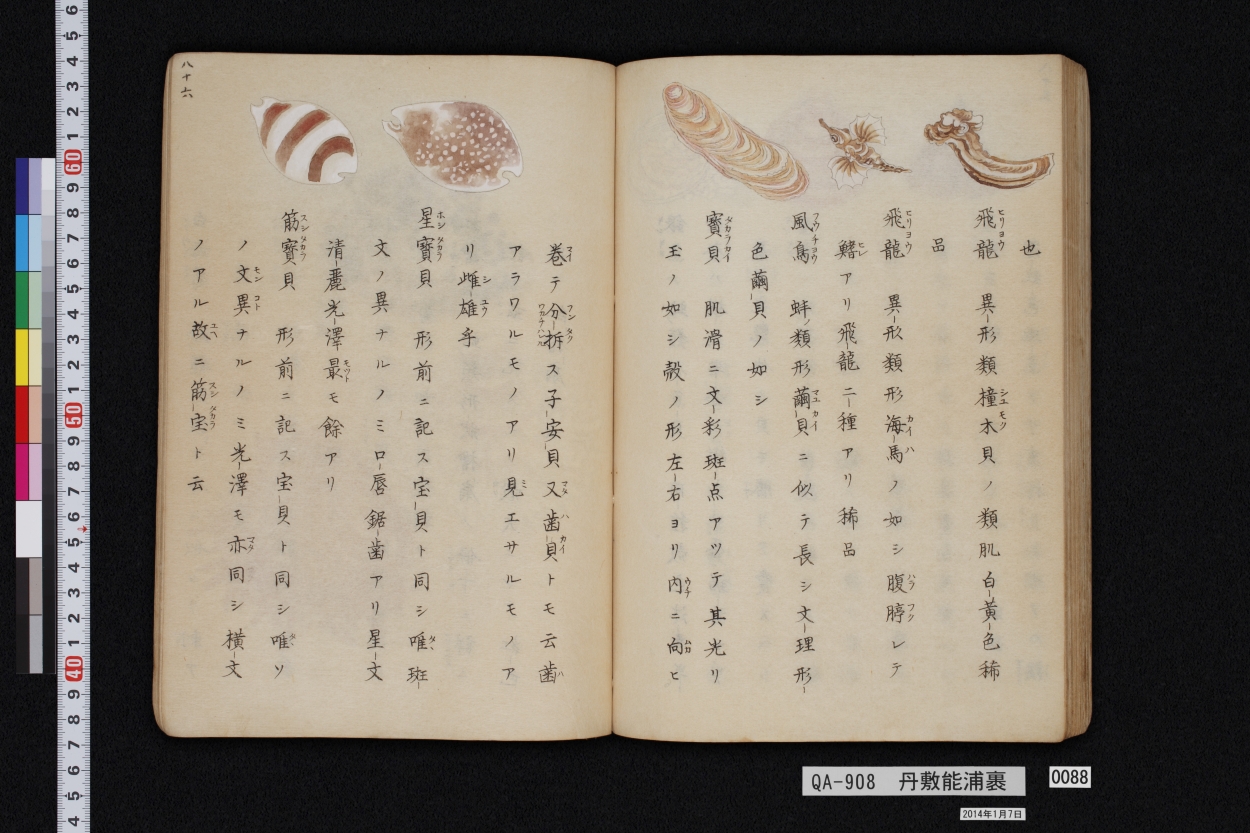 也
飛龍 異形類橦木貝ノ類肌白黄色稀
品
飛龍 異形類形海馬ノ如シ腹脝レテ
鰭アリ飛龍ニ種アリ稀品
風鳥 蚌ノ類形繭貝ニ似テ長シ文理形
色繭貝ノ如シ
寶貝 肌滑ニ文彩斑点アツテ其光リ
玉ノ如シ殻ノ形左右ヨリ内ニ向ヒ
巻テ分拆ス子安貝又歯貝トモ云歯
アラワルモノアリ見エサルモノア
リ雌雄乎
星寶貝 形前ニ記ス宝貝ト同シ唯斑
文ノ異ナルノミロ唇鋸歯アリ星文
清麗光澤最モ餘アリ
筋寶貝 形前ニ記ス宝貝ト同シ唯ソ
ノ文異ナルノミ光澤モ亦同シ横文
ノアル故ニ筋宝ト云
八十六
QA-908 丹敷能浦裹
0088
2014年1月7日